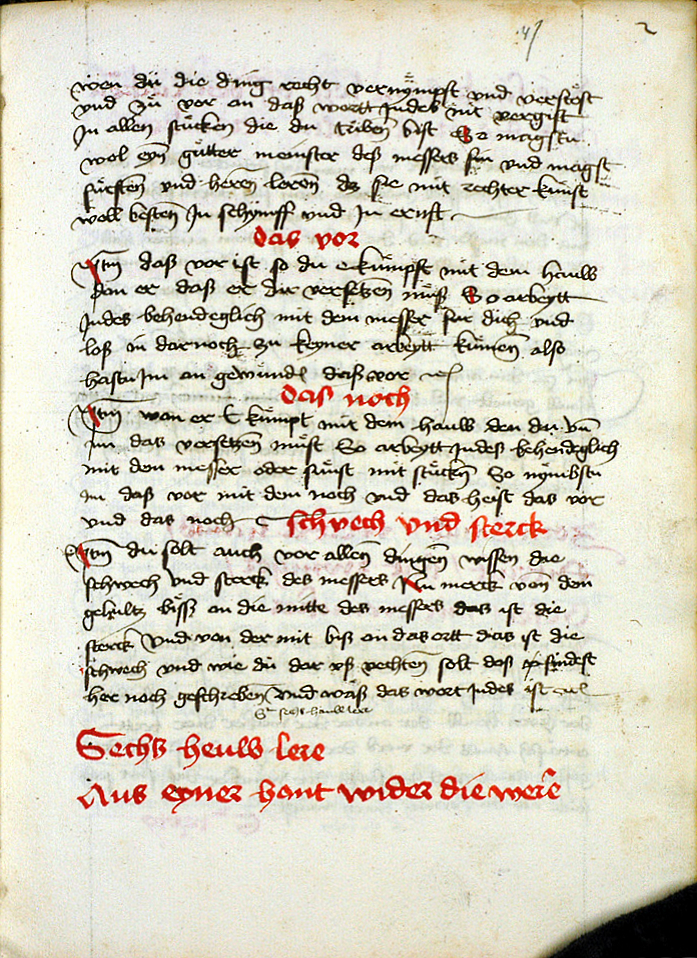 2
wen du die ding recht vernympst vnd verstest
vnd zu vor an daß wortt Indes nit vergist
In allen stücken die du triben bist So magstu
wol eyn gutter meinster deß messers sin vnd magst
fursten vnd heren leren das sie mit rechter kunst
woll besten In schympff vnd In ernst
das vor
Itm daß vor ist so du e kumpst mit dem hauw
dan er daß er dir versetzen muß So arbeytt
Indes behendeglich mit dem messer fur dich vnd
loß in darnoch zu keyner arbeytt kumen also
hastu Im an gewunden daß vor
das noch
Itm wan er e kumpt mit dem hauw den du vnd
Im das versetzen must So arbeytt Indes behendeglich
mit dem messer oder sunst mit stucken So nymbstu
Im daß vor mit dem noch vnd das heist das vor
vnd das noch schwech vnd sterck
Itm du solt auch vor allen dingen wissen die
schwech vnd sterck des messers Nu merck von dem
gehultz bisß an die mitte des messers das ist die
sterck vnd von der mit biß an das ortt das ist die
schwech vnd wie du dar vß vechten solt daß findest
her noch geschreben vnd waß das wort Indes ist
sechs hauw lere
Sechs heuw lere
Aus eyner hant wider die were